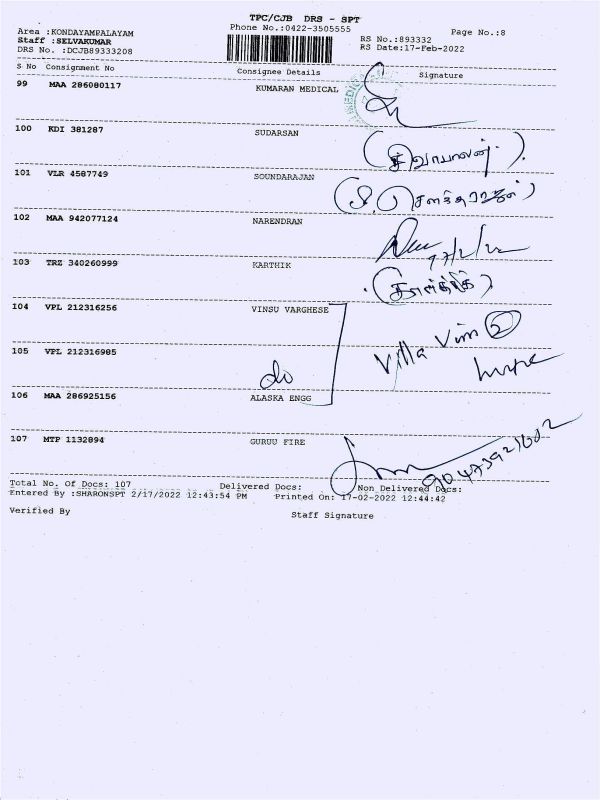 TPC/CJB DRS - SPT
Area :KONDAYAMPALAYAM Phone No.:0422-3505555 Page No.:8
Staff :SELVAKUMAR RS No.:893332
DRS No. :DCJB89333208 RS Date:17-Feb-2022
S No Consignment No Consignee Details Signature
99 MAA 286080117 KUMARAN MEDICAL
100 KDI 381287 SUDARSAN
101 VLR 4587749 SOUNDARAJAN
102 MAA 942077124 NARENDRAN
17/2/22
103 TRZ 340260999 KARTHIK
(கார்த்திக்)
104 VPL 212316256 VINSU VARGHESE
Villa Vim 2
105 VPL 212316985
do
106 MAA 286925156 ALASKA ENGG
107 MTP 1132894 GURUU FIRE
Total No. Of Docs: 107 Delivered Docs: Non Delivered Docs:
Entered By :SHARONSPT 2/17/2022 12:43:54 PM Printed On: 17-02-2022 12:44:42
Verified By Staff Signature